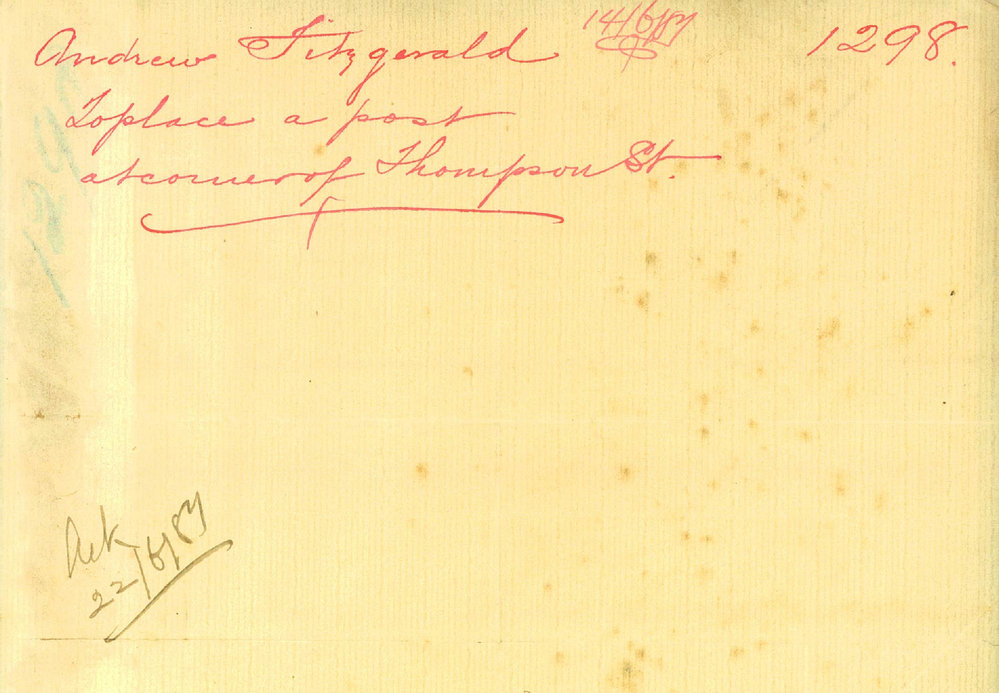 14/6/87
Andrew Fitzgerald 1298.
To place a post
at corner of Thompson St.
129
Ack
22/6/87